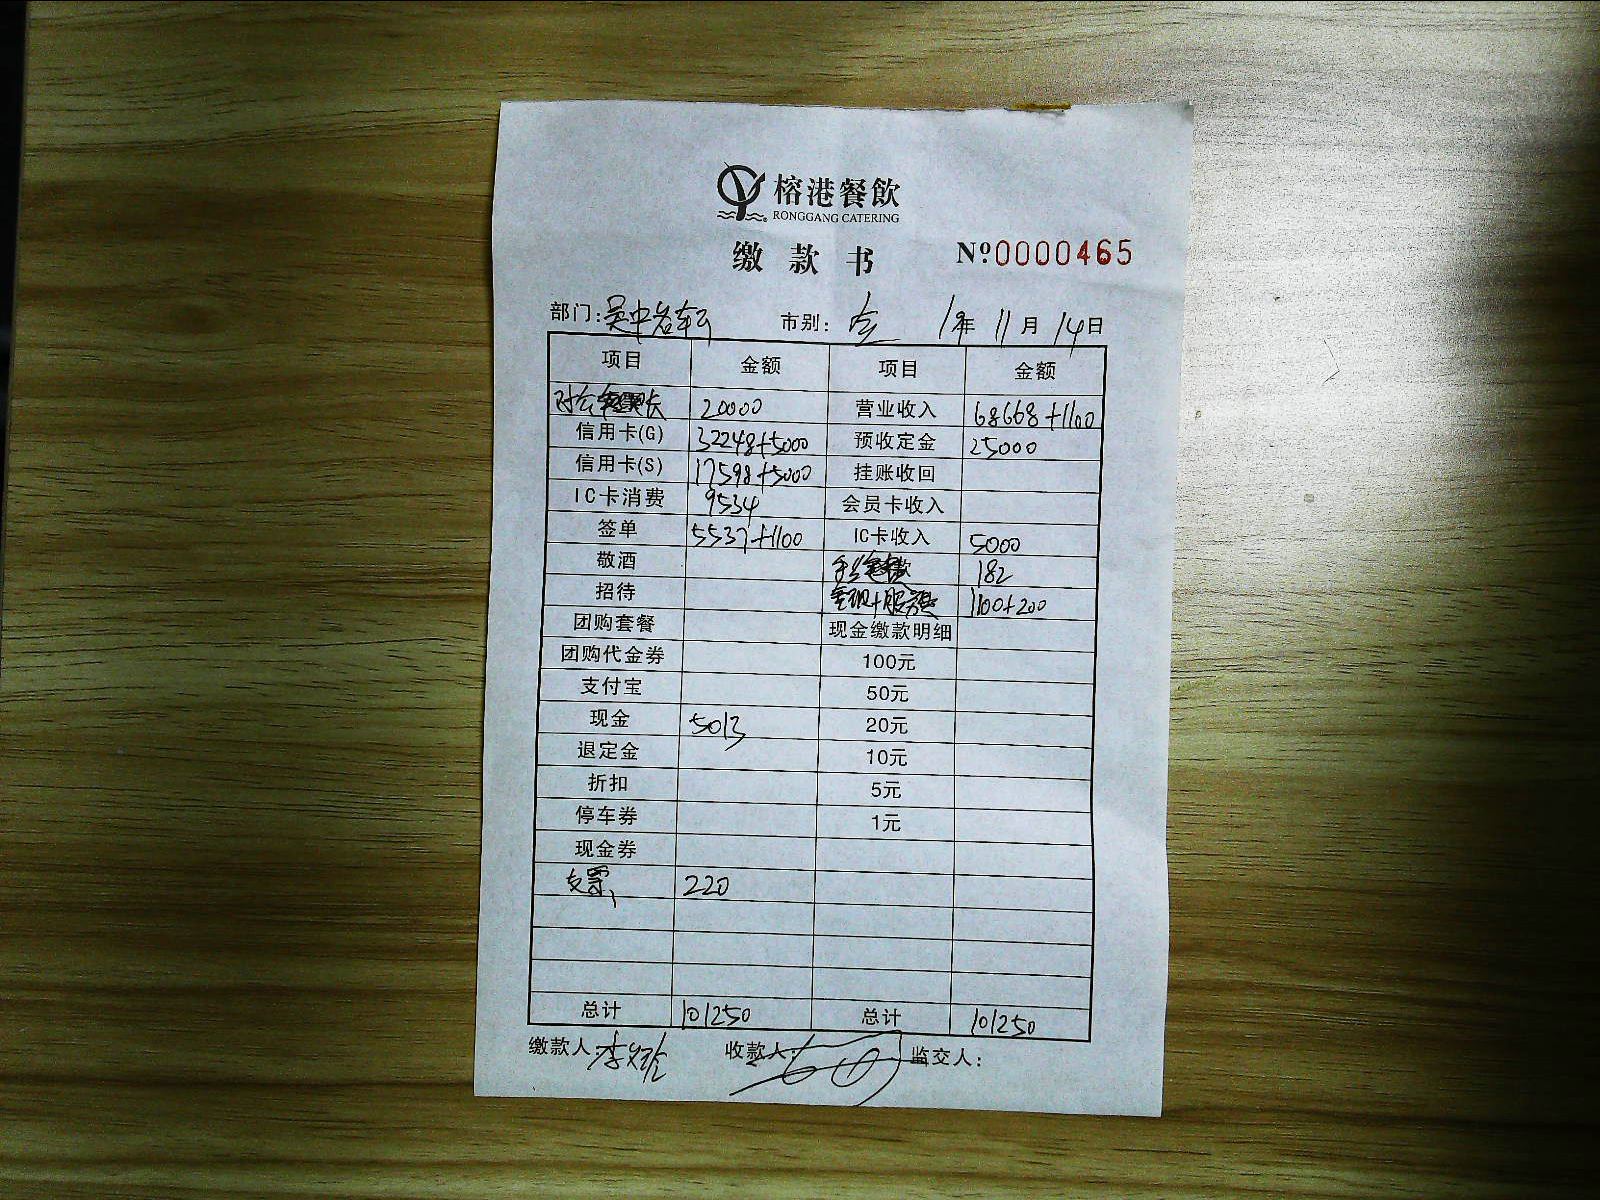 榕港餐飲
RONGGANG CATERING
缴款书 Nº0000465
部门: 吴中 市别: 年 11月 14日
项目 金额 项目 金额
20000 营业收入 68668+1100
信用卡(G) 32248+5000 预收定金 25000
信用卡(S) 17598+5000 挂账收回
IC卡消费 9534 会员卡收入
签单 5537+1100 IC卡收入 5000
敬酒 182
招待 1100+200
团购套餐 现金缴款明细
团购代金券 100元
支付宝 50元
现金 5013 20元
退定金 10元
折扣 5元
停车券 1元
现金券
支票 220
总计 101250 总计 101250
缴款人: 收款人: 监交人: